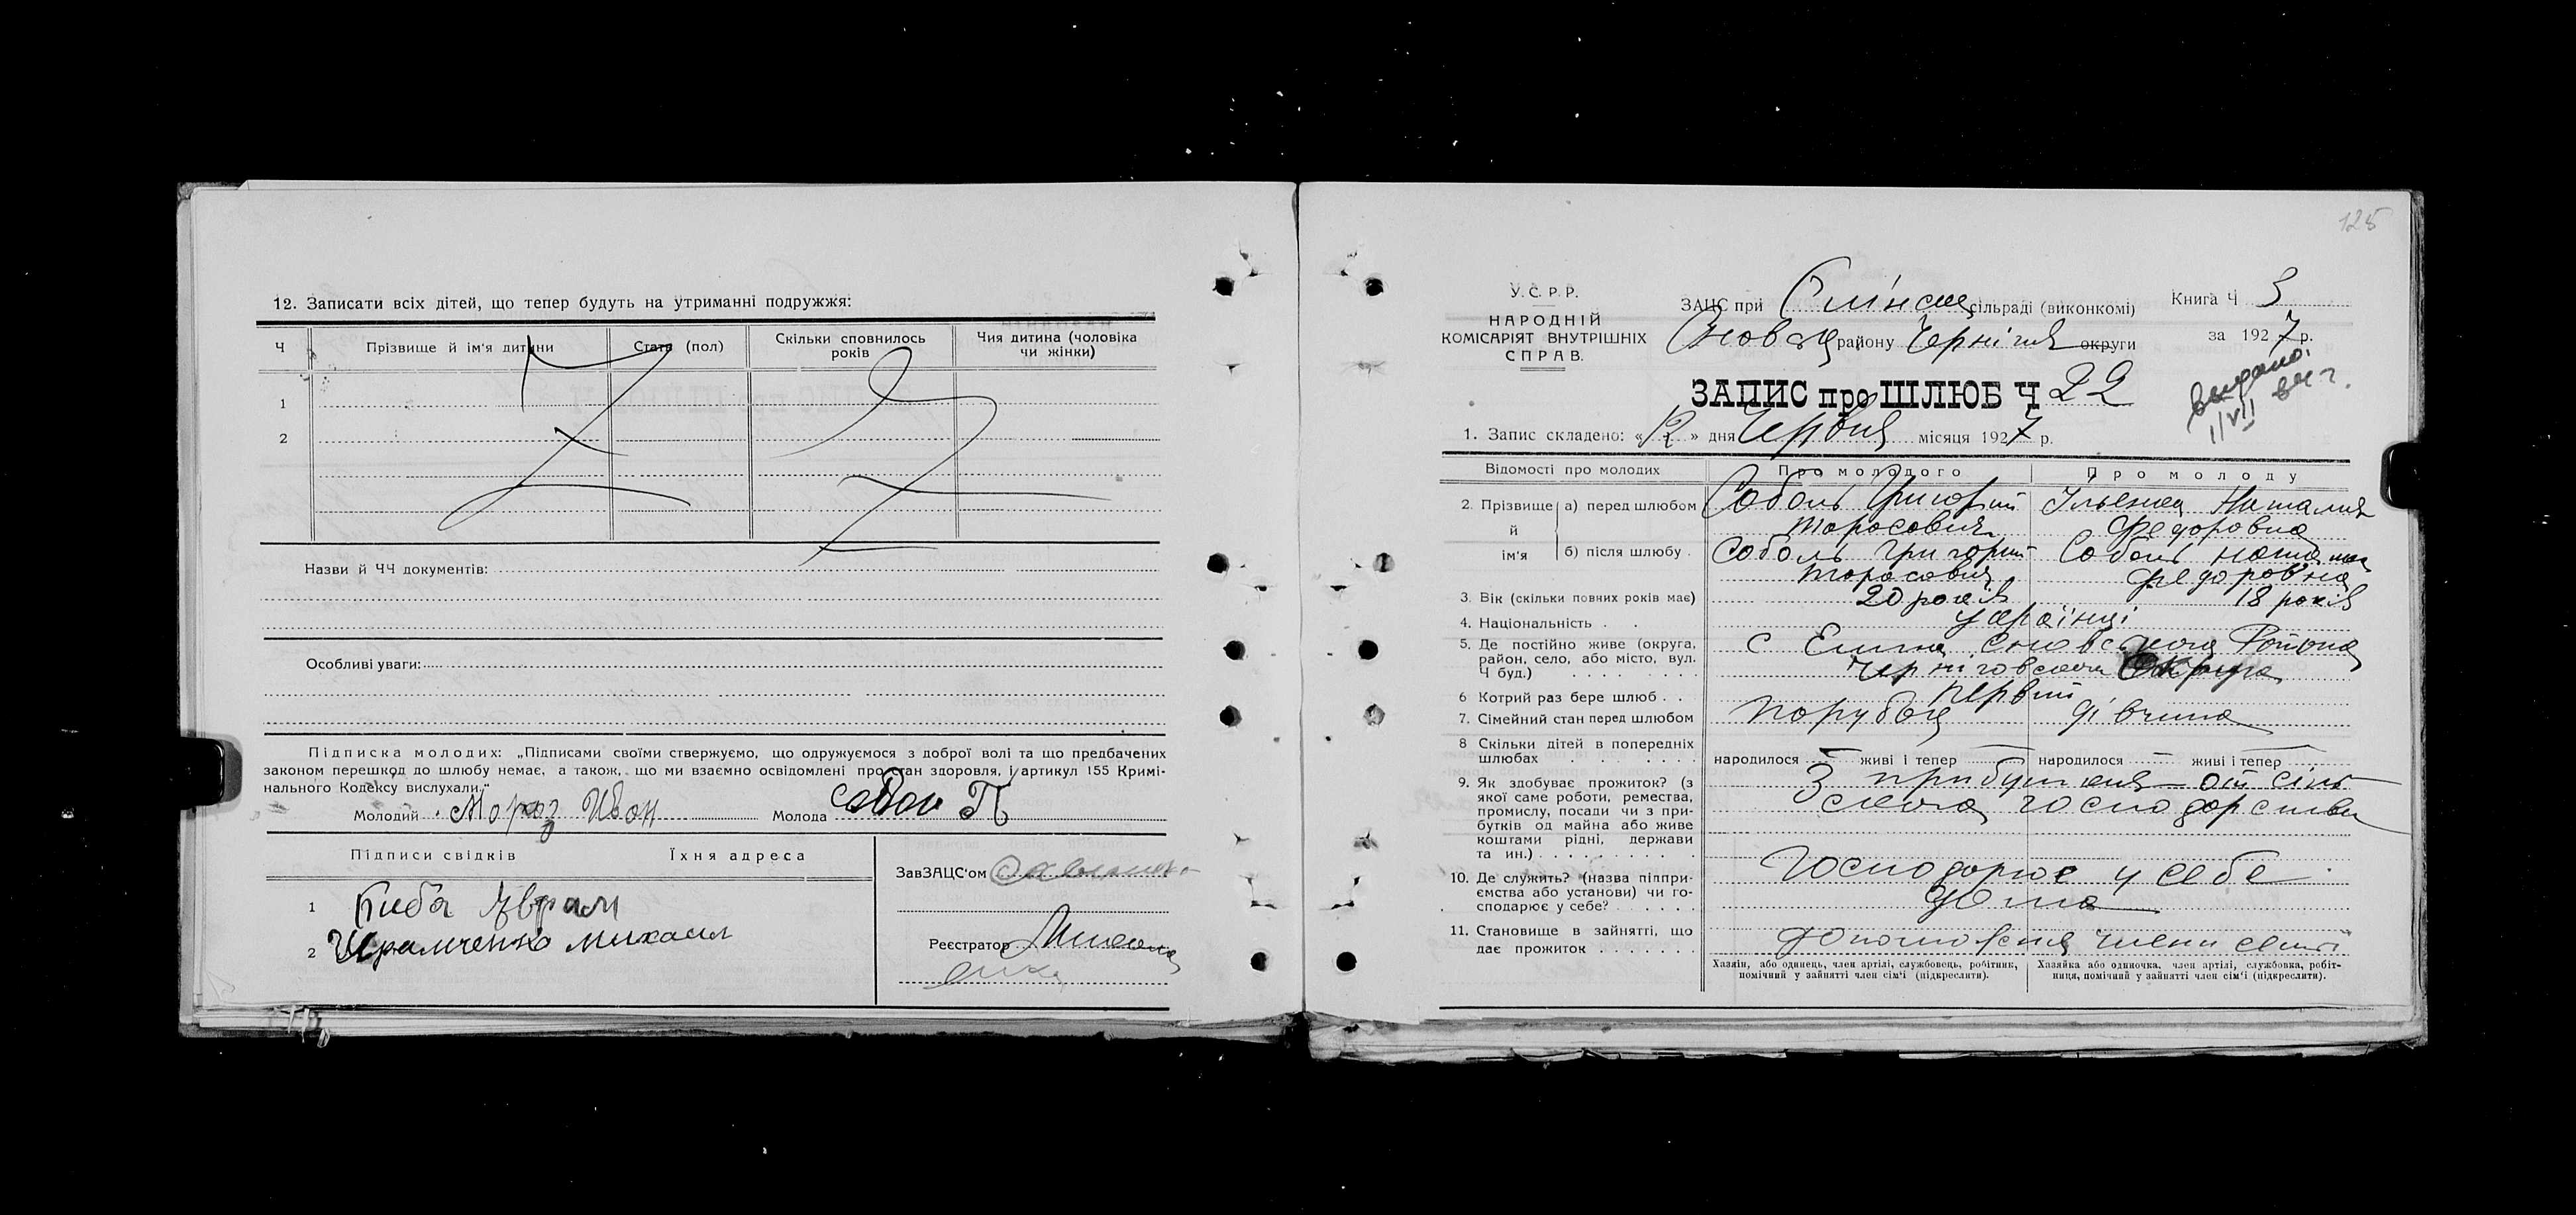 12. Записати всіх дітей, що тепер будуть на утриманні подружжя:
Ч
Прізвище й ім'я дитини
Стать (пол)
Скільки сповнилось років
Чия дитина (чоловіка чи жінки)
1
2
Назви й ЧЧ документів:
Особливі уваги:
Підписка молодих: „Підписами своїми стверджуємо, що одружуємося з доброї волі та що предбачених
законом перешкод до шлюбу немає, а також, що ми взаємно освідомлені про стан здоровля, і артикул 155 Кримі-
нального Кодексу вислухали."
Молодий Мороз Иван Молода
Підписи свідків Їхня адреса
1
2 михаил
ЗавЗАЦС'ом
Реєстратор
125
У. С. Р. Р.
НАРОДНІЙ
КОМІСАРІЯТ ВНУТРІШНІХ
СПРАВ.
ЗАЦС при сільраді (виконкомі)
району округи
Книга Ч 3
за 1927 р.
ЗАПИС про ШЛЮБ Ч 22
1. Запис складено: «12» дня Червня місяця 1927 р.
Відомості про молодих
Про молодого
Про молоду
2. Прізвище й ім'я
а) перед шлюбом
Соболь Григорий
Торасович
Федоровна
б) після шлюбу
Соболь Григорий
Торасович
Соболь
Федоровна
3. Вік (скільки повних років має)
20 років
18 років
4. Національність
українці
5. Де постійно живе (округа,
район, село, або місто, вул.
Ч буд.)
с
6 Котрий раз бере шлюб
первий
7. Сімейний стан перед шлюбом
Порубок
дівчина
8 Скільки дітей в попередніх
шлюбах
народилося живі і тепер
народилося живі і тепер
9. Як здобуває прожиток? (з
якої саме роботи, ремества,
промислу, посади чи з при-
бутків од майна або живе
коштами рідні, держави
та ин.)
З от сіль
10. Де служить? (назва підпри-
ємства або установи) чи го-
сподарює у себе?
Господорює у себе
дома
11. Становище в зайнятті, що
дає прожиток
члени семті
Хазяїн, або одинець, член артілі, службовець, робітник,
помічний у зайнятті член сім'ї (підкреслити).
Хазяйка або одиночка, член артілі, службовка, робіт-
ниця, помічний у зайнятті член сім'ї (підкреслити).